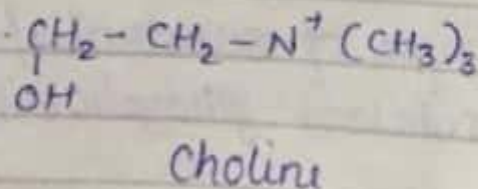 CH₂ - CH₂ - N⁺ (CH₃)₃
OH
Choline